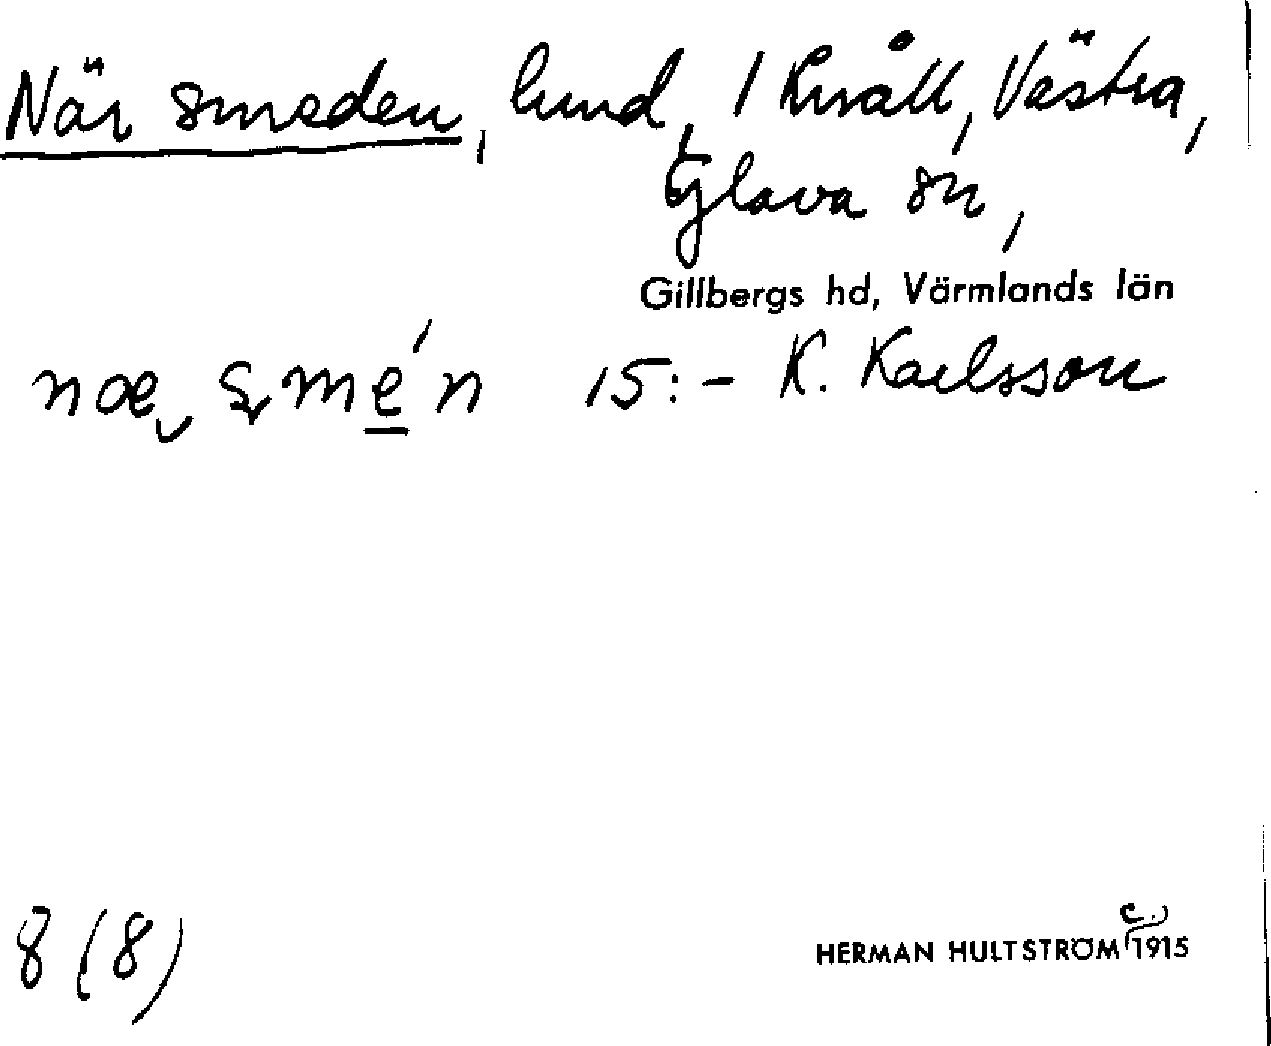 När smeden, lund, 1 Knåll, Västra,
Glava sn,
Gillbergs hd, Värmlands län
næ, smén 15:- K. Karlsson
8 (8)
HERMAN HULTSTRÖM c. 1915